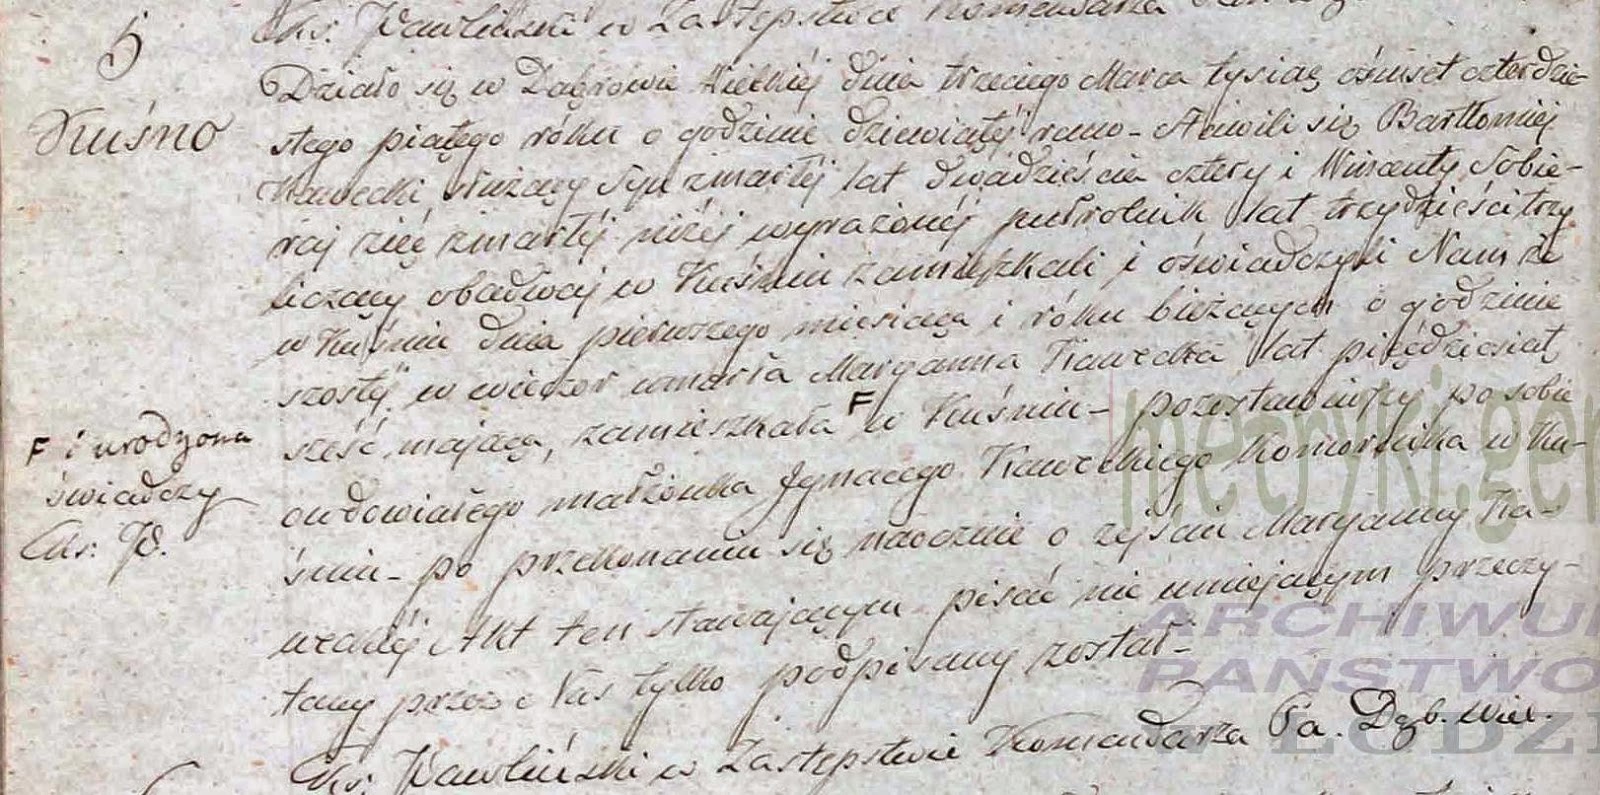 Ks. Pawliński w Zastępstwie Komendarza
5
Kuśno
Działo się w Dąbrowie Wielkiéj dnia trzeciego Marca tysiąc ośmset czterdzie-
stego piątego róku o godzinie dziewiątéj rano - Stawili się Bartłomiéj
Kawecki służący Syn zmarłéj lat dwadzieścia cztery i Wincenty Sobie-
raj zięć zmarłéj niżéj wyrażonéj pułrolnik lat trzydzieści trzy
liczący obadwaj w Kuśniu zamieszkali i oświadczyli Nam że
w Kuśniu dnia pierwszego miesiąca i róku bieżących o godzinie
szostéj w wieczor umarła Maryanna Kawecka lat pięćdziesiąt
sześć mająca, zamieszkała F w Kuśniu - pozostawiwszy po sobie
F i urodzona
świadczy
Ks. P.
owdowiałego małżonka Jgnacego Kaweckiego Komornika w Ku-
śniu - po przekonaniu się naocznie o zejściu Maryanny Ka-
weckiéj Akt ten stawającym pisać nie umiejącym przeczy-
tany przez Nas tylko podpisany został -
Ks. Pawliński w Zastępstwie Komendarza Pa. Dąb. Wiel.
metryki.gen
ARCHIWU
PAŃSTWO
ŁODZI